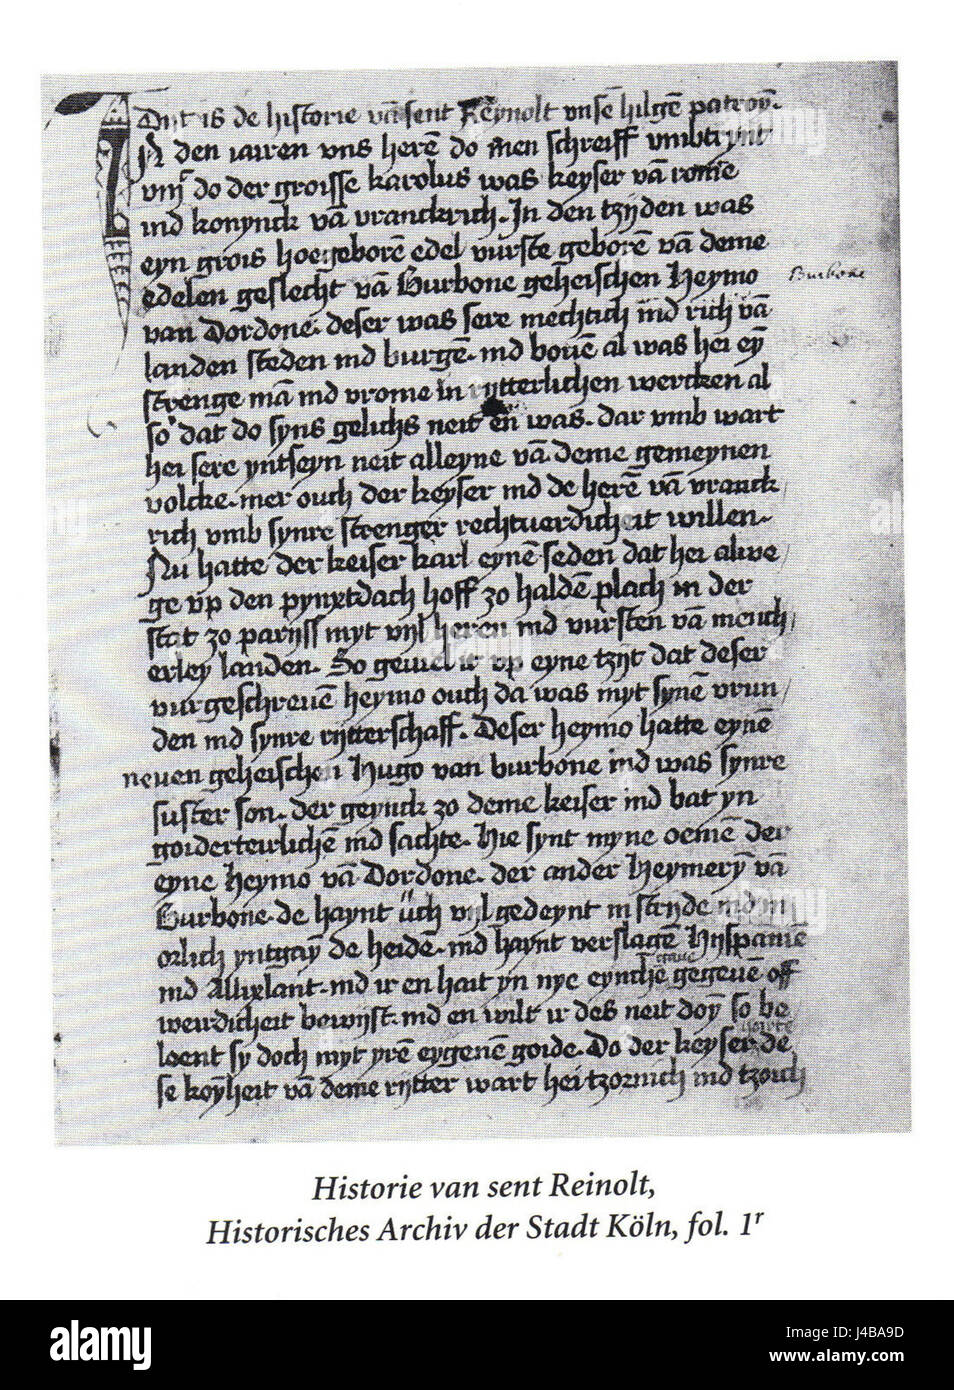 Dyt is de historie vā sent Reynolt vnsē hilgē patroȳ.
IN den iairen vns herē do men schreiff vmbtrynt
viijͨ do der groisse karolus was keyser vā rome
ind konynck vā vranckrich. In den tzijden was
eyn grois hoegeborē edel vurste geborē vā deme
edelen geslecht vā Burbone geheischen Heymo
Burbone
van Dordone. deser was sere mechtich ind rich vā
landen steden ind burgē. ind bouē al was hei eȳ
strenge mā ind vrome in rijtterlichen wercken al
so dat do syns gelichs neit en was. dar vmb wart
hei sere yntseyn neit alleyne vā deme gemeynen
volcke. mer ouch der keyser ind de herē vā vranck/
rich vmb synre strenger rechtuerdicheit willen.
Nu hatte der keiser karl eynē seden dat hei alwe/
ge vp den pynxtdach hoff zo haldē plach in der
stat zo parijss myt vijl heren ind vursten vā mench/
erley landen. So geuiel it vp eyne tzijt dat deser
vurgeschreuē heymo ouch da was myt synē vrun/
den ind synre rijtterschaff. Deser heymo hatte eynē
neuen geheischen Hugo van burbone ind was synre
suster son. der geynck zo deme keiser ind bat yn
goiderteirlichē ind sachte. Hie synt myne oemē der
eyne Heymo vā Dordone. der ander Heymerȳ vā
Burbone. de haynt uch vijl gedeynt in strijde ind in
orlich yntgaȳ de heidē. ind haynt verslagē Hijspaniē
ind Allixlant. ind ir en hait yn nye eynche gegeuē off
gaue
weirdicheit bewijst. ind en wilt ir des neit doȳ so be
loent sy doch myt yrē eygenē goide. Do der keyser de
se koȳheit vā deme rijtter wart hei tzornich ind tzoich
Historie van sent Reinolt,
Historisches Archiv der Stadt Köln, fol. 1r
alamy
alamy
alamy
alamy
alamy
Image ID: J4BA9D
www.alamy.com